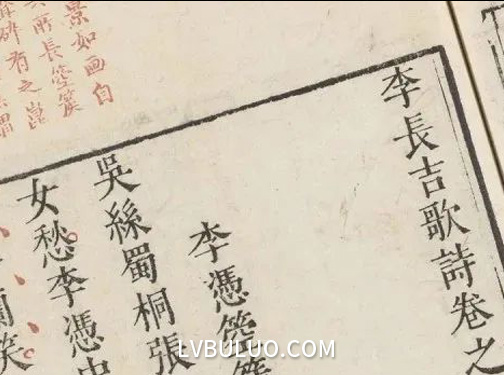 景如画自
所長箜篌
碑有之
李長吉歌詩卷之
李憑箜篌
吳絲蜀桐張
女愁李憑中
蘭笑
LVBULUO.COM